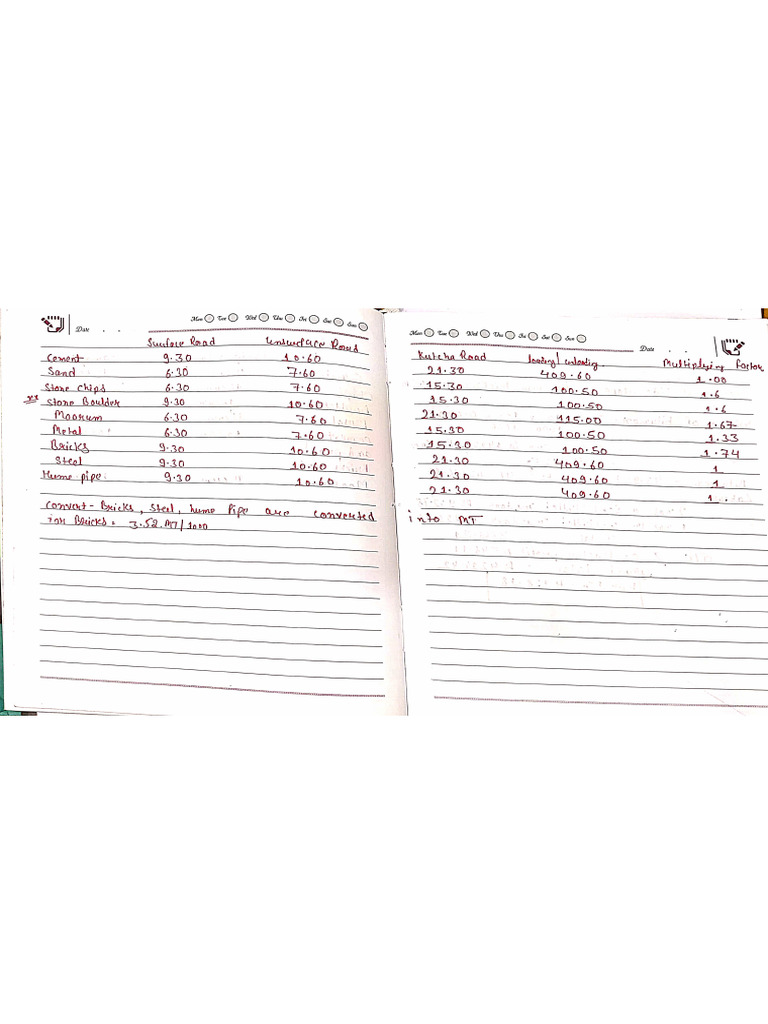 Mon Tue Wed Thu Fri Sat Sun
Date
Surface Road Unsurface Road
Cement 9.30 10.60
Sand 6.30 7.60
Stone chips 6.30 7.60
Stone Boulder 9.30 10.60
Moorum 6.30 7.60
Metal 6.30 7.60
Bricks 9.30 10.60
Steel 9.30 10.60
Hume pipe 9.30 10.60
Convert - Bricks, Steel, hume Pipe are converted
Bricks = 3.52 MT/1000
Mon Tue Wed Thu Fri Sat Sun
Date
Kutcha Road loading/unloading Multiplying factor
21.30 409.60 1.00
15.30 100.50 1.6
15.30 100.50 1.6
21.30 115.00 1.67
15.30 100.50 1.33
15.30 100.50 1.74
21.30 409.60 1
21.30 409.60 1
21.30 409.60 1
into MT